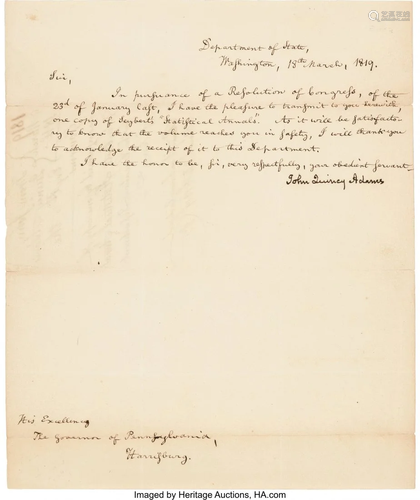 易拍全球
Department of State,
Washington, 18th March, 1819.
Sir,
In pursuance of a Resolution of Congress, of the
23d of January last, I have the pleasure to transmit to you herewith,
one copy of Seybert's "Statistical Annals". As it will be satisfacto-
ry to know that the volume reaches you in safety, I will thank you
to acknowledge the receipt of it to this Department.
I have the honor to be, Sir, very respectfully, your obedient servant
John Quincy Adams
His Excellency
The Governor of Pennsylvania,
Harrisburg.
Imaged by Heritage Auctions, HA.com